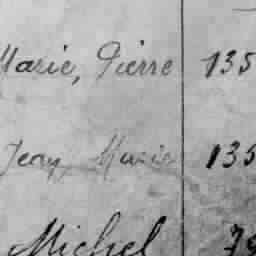 Marie, Pierre 135
Jean Marie 135
Michel 79